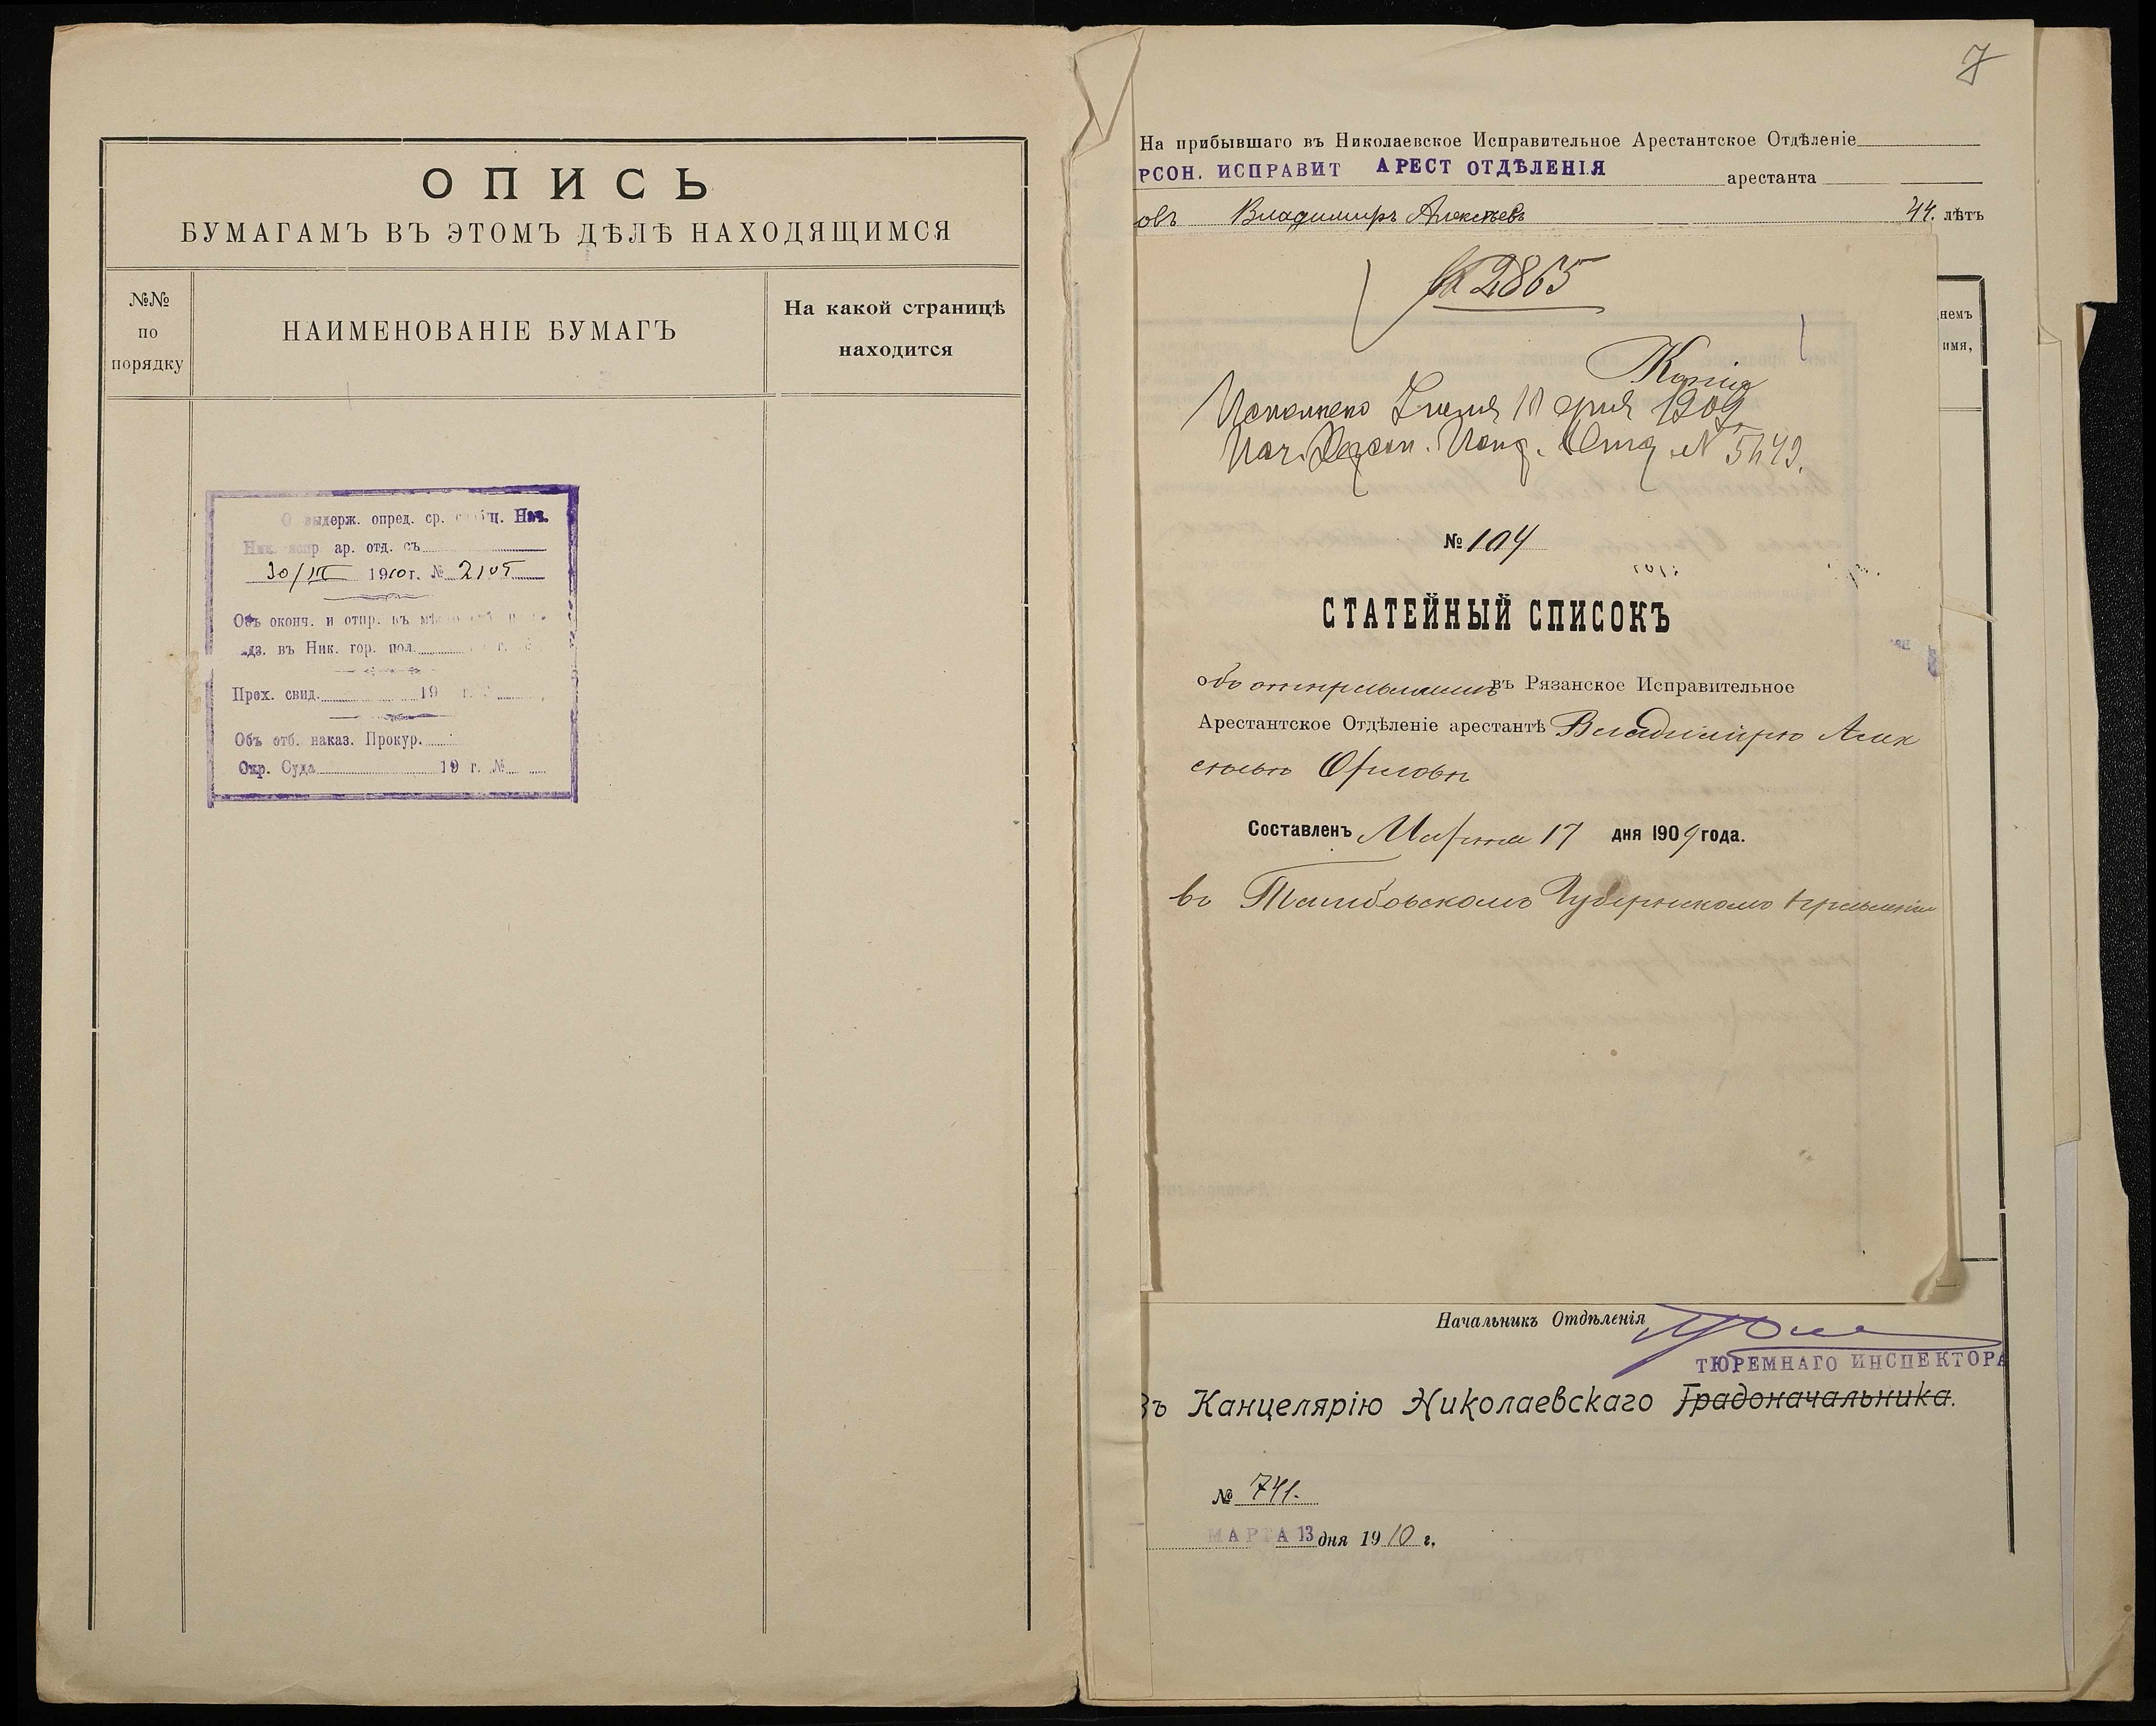 ОПИСЬ
БУМАГАМЪ ВЪ ЭТОМЪ ДѢЛѢ НАХОДЯЩИМСЯ
№№
по
порядку
НАИМЕНОВАНІЕ БУМАГЪ
На какой страницѣ
находится
О выдерж. опред. ср. Нач.
Ник. испр. ар. отд. съ
30/III 1910 г. № 2105
Объ оконч. и отпр. въ
въ Ник. гор. пол.
Прох. свид. 19 г.
Объ отб. наказ. Прокур.
Окр. Суда 19 г. №
7
На прибывшаго въ Николаевское Исправительное Арестантское Отдѣленіе
РСОН. ИСПРАВИТ АРЕСТ ОТДѢЛЕНІЯ арестанта
овъ Владимиръ Алексѣевъ 44. лѣтъ
2865
немъ
имя,
Копія
1909
№ 5449.
№ 104
СТАТЕЙНЫЙ СПИСОКЪ
объ отправляемомъ въ Рязанское Исправительное
Арестантское Отдѣленіе арестантѣ Владимірѣ Алек
сѣевѣ Орловѣ
Составленъ Марта 17 дня 1909 года.
въ Тамбовскомъ Губернскомъ Правленіи
Начальникъ Отдѣленія
ТЮРЕМНАГО ИНСПЕКТОРА
Въ Канцелярію Николаевскаго Градоначальника.
№ 741.
МАРТА 13 дня 1910 г.